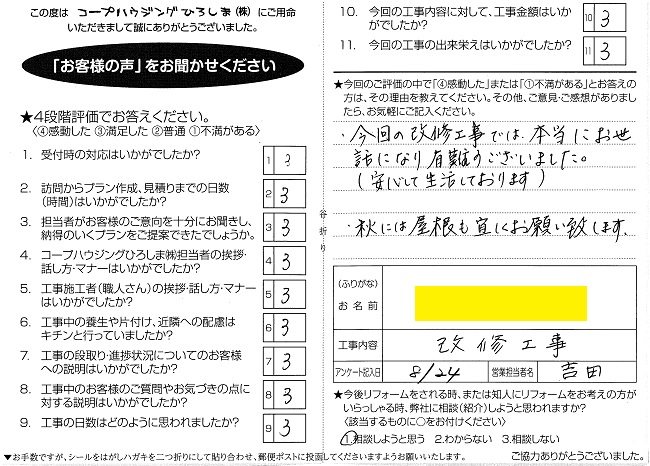 この度は コープハウジングひろしま(株) にご用命
いただきまして誠にありがとうございました。
「お客様の声」をお聞かせください
★4段階評価でお答えください。
〈④感動した ③満足した ②普通 ①不満がある〉
1. 受付時の対応はいかがでしたか?
1 3
2. 訪問からプラン作成、見積りまでの日数
(時間)はいかがでしたか?
2 3
3. 担当者がお客様のご意向を十分にお聞きし、
納得のいくプランをご提案できたでしょうか。
3 3
4. コープハウジングひろしま㈱担当者の挨拶・
話し方・マナーはいかがでしたか?
4 3
5. 工事施工者(職人さん)の挨拶・話し方・マナー
はいかがでしたか?
5 3
6. 工事中の養生や片付け、近隣への配慮は
キチンと行っていましたか?
6 3
7. 工事の段取り・進捗状況についてのお客様
への説明はいかがでしたか?
7 3
8. 工事中のお客様のご質問やお気づきの点に
対する説明はいかがでしたか?
8 3
9. 工事の日数はどのように思われましたか?
9 3
▼お手数ですが、シールをはがしハガキを二つ折りにして貼り合わせ、郵便ポストに投函してくださいますようお願いいたします。
谷折り
10. 今回の工事内容に対して、工事金額はいか
がでしたか?
10 3
11. 今回の工事の出来栄えはいかがでしたか?
11 3
★今回のご評価の中で「④感動した」または「①不満がある」とお答えの
方は、その理由を教えてください。その他、ご意見・ご感想がありました
ら、お気軽にご記入ください。
・今回の改修工事では、本当にお世
話になり有難うございました。
(安心して生活しております)
・秋には屋根も宜しくお願い致します。
(ふりがな)
お名前
工事内容 改修工事
アンケート記入日 8/24 営業担当者名 吉田
★今後リフォームをされる時、または知人にリフォームをお考えの方が
いらっしゃる時、弊社に相談(紹介)しようと思われますか?
〈該当するものに○をお付けください〉
1.相談しようと思う 2.わからない 3.相談しない
ご協力ありがとうございました。